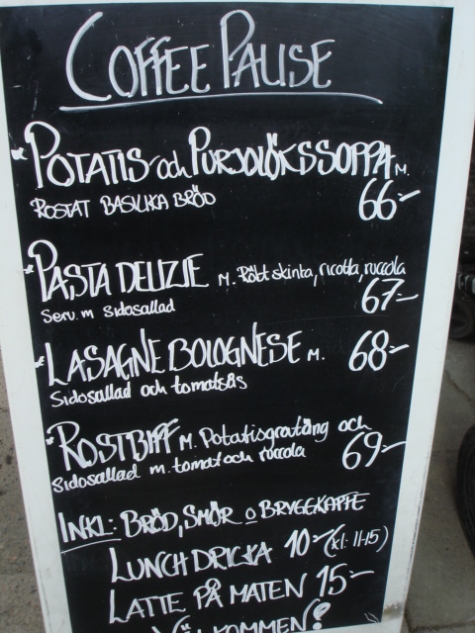 COFFEE PAUSE
*POTATIS och PURJOLÖKSSOPPA M.
ROSTAT BASILIKA BRÖD 66:-
*PASTA DELIZIE M. Rökt skinka, ricotta, ruccola
Serv. m sidosallad 67:-
*LASAGNE BOLOGNESE M. 68:-
Sidosallad och tomatsås
*ROSTBIFF M. Potatisgratäng och
Sidosallad m. tomat och ruccola 69:-
INKL: BRÖD, SMÖR o BRYGGKAFFE
LUNCH DRICKA 10:- (kl: 11-15)
LATTE PÅ MATEN 15:-
VÄLKOMMEN!